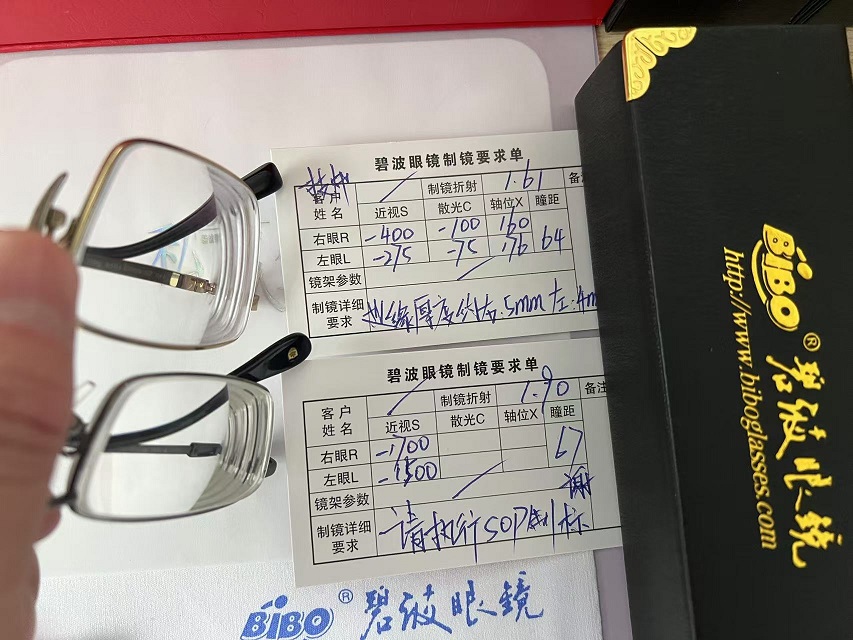 碧波眼镜制镜要求单
客户姓名 近视S 制镜折射 1.61 备注
散光C 轴位X 瞳距
右眼R -400 -100 160 64
左眼L -275 -75 76
镜架参数
制镜详细要求 边缘厚度约右.5mm左.4m
碧波眼镜制镜要求单
客户姓名 近视S 制镜折射 1.90 备注
散光C 轴位X 瞳距
右眼R -1700 67
左眼L -1500
镜架参数 谢
制镜详细要求 请执行SOP 标
BiBO® 碧波眼镜
BiBO® 碧波眼镜
http://www.biboglasses.com